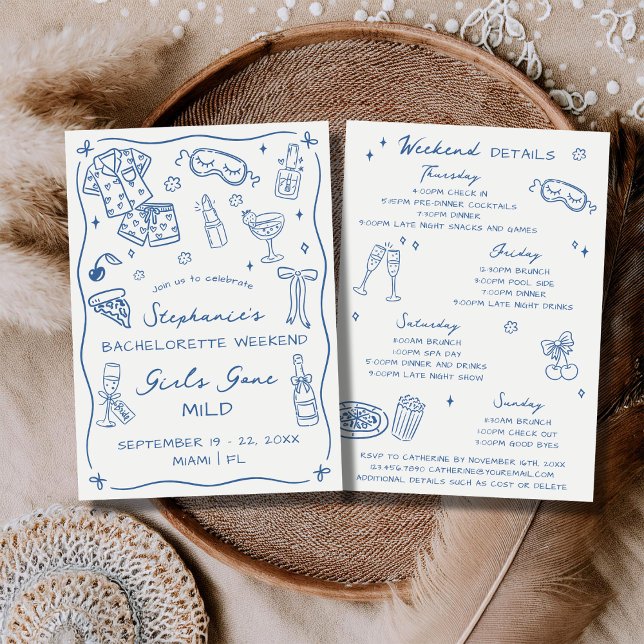 Join us to celebrate
Stephanie's
BACHELORETTE WEEKEND
Girls Gone
MILD
Bride
SEPTEMBER 19 - 22, 20XX
MIAMI | FL
Weekend DETAILS
Thursday
4:00PM CHECK IN
5:15PM PRE-DINNER COCKTAILS
7:30PM DINNER
9:00PM LATE NIGHT SNACKS AND GAMES
Friday
12:30PM BRUNCH
3:00PM POOL SIDE
7:00PM DINNER
9:00PM LATE NIGHT DRINKS
Saturday
11:00AM BRUNCH
1:00PM SPA DAY
5:00PM DINNER AND DRINKS
9:00PM LATE NIGHT SHOW
Sunday
11:30AM BRUNCH
1:00PM CHECK OUT
3:00PM GOOD BYES
RSVP TO CATHERINE BY NOVEMBER 16TH, 20XX
123.456.7890 CATHERINE@YOUREMAIL.COM
ADDITIONAL DETAILS SUCH AS COST OR DELETE